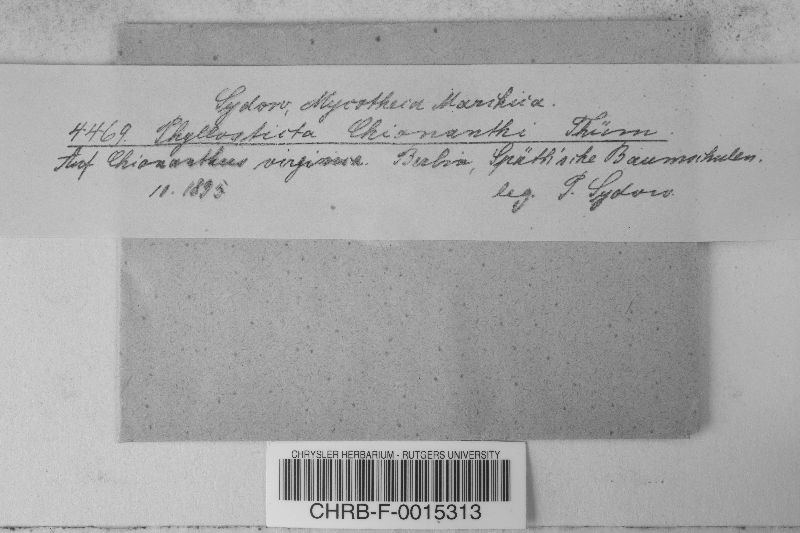 Sydow, Mycotheca Marchica.
4469 Phyllosticta Chionanthi Thüm.
Auf Chionanthus virginica. Berlin, Späth'sche Baumschulen.
10. 1895 leg. P. Sydow.
CHRYSLER HERBARIUM - RUTGERS UNIVERSITY
CHRB-F-0015313